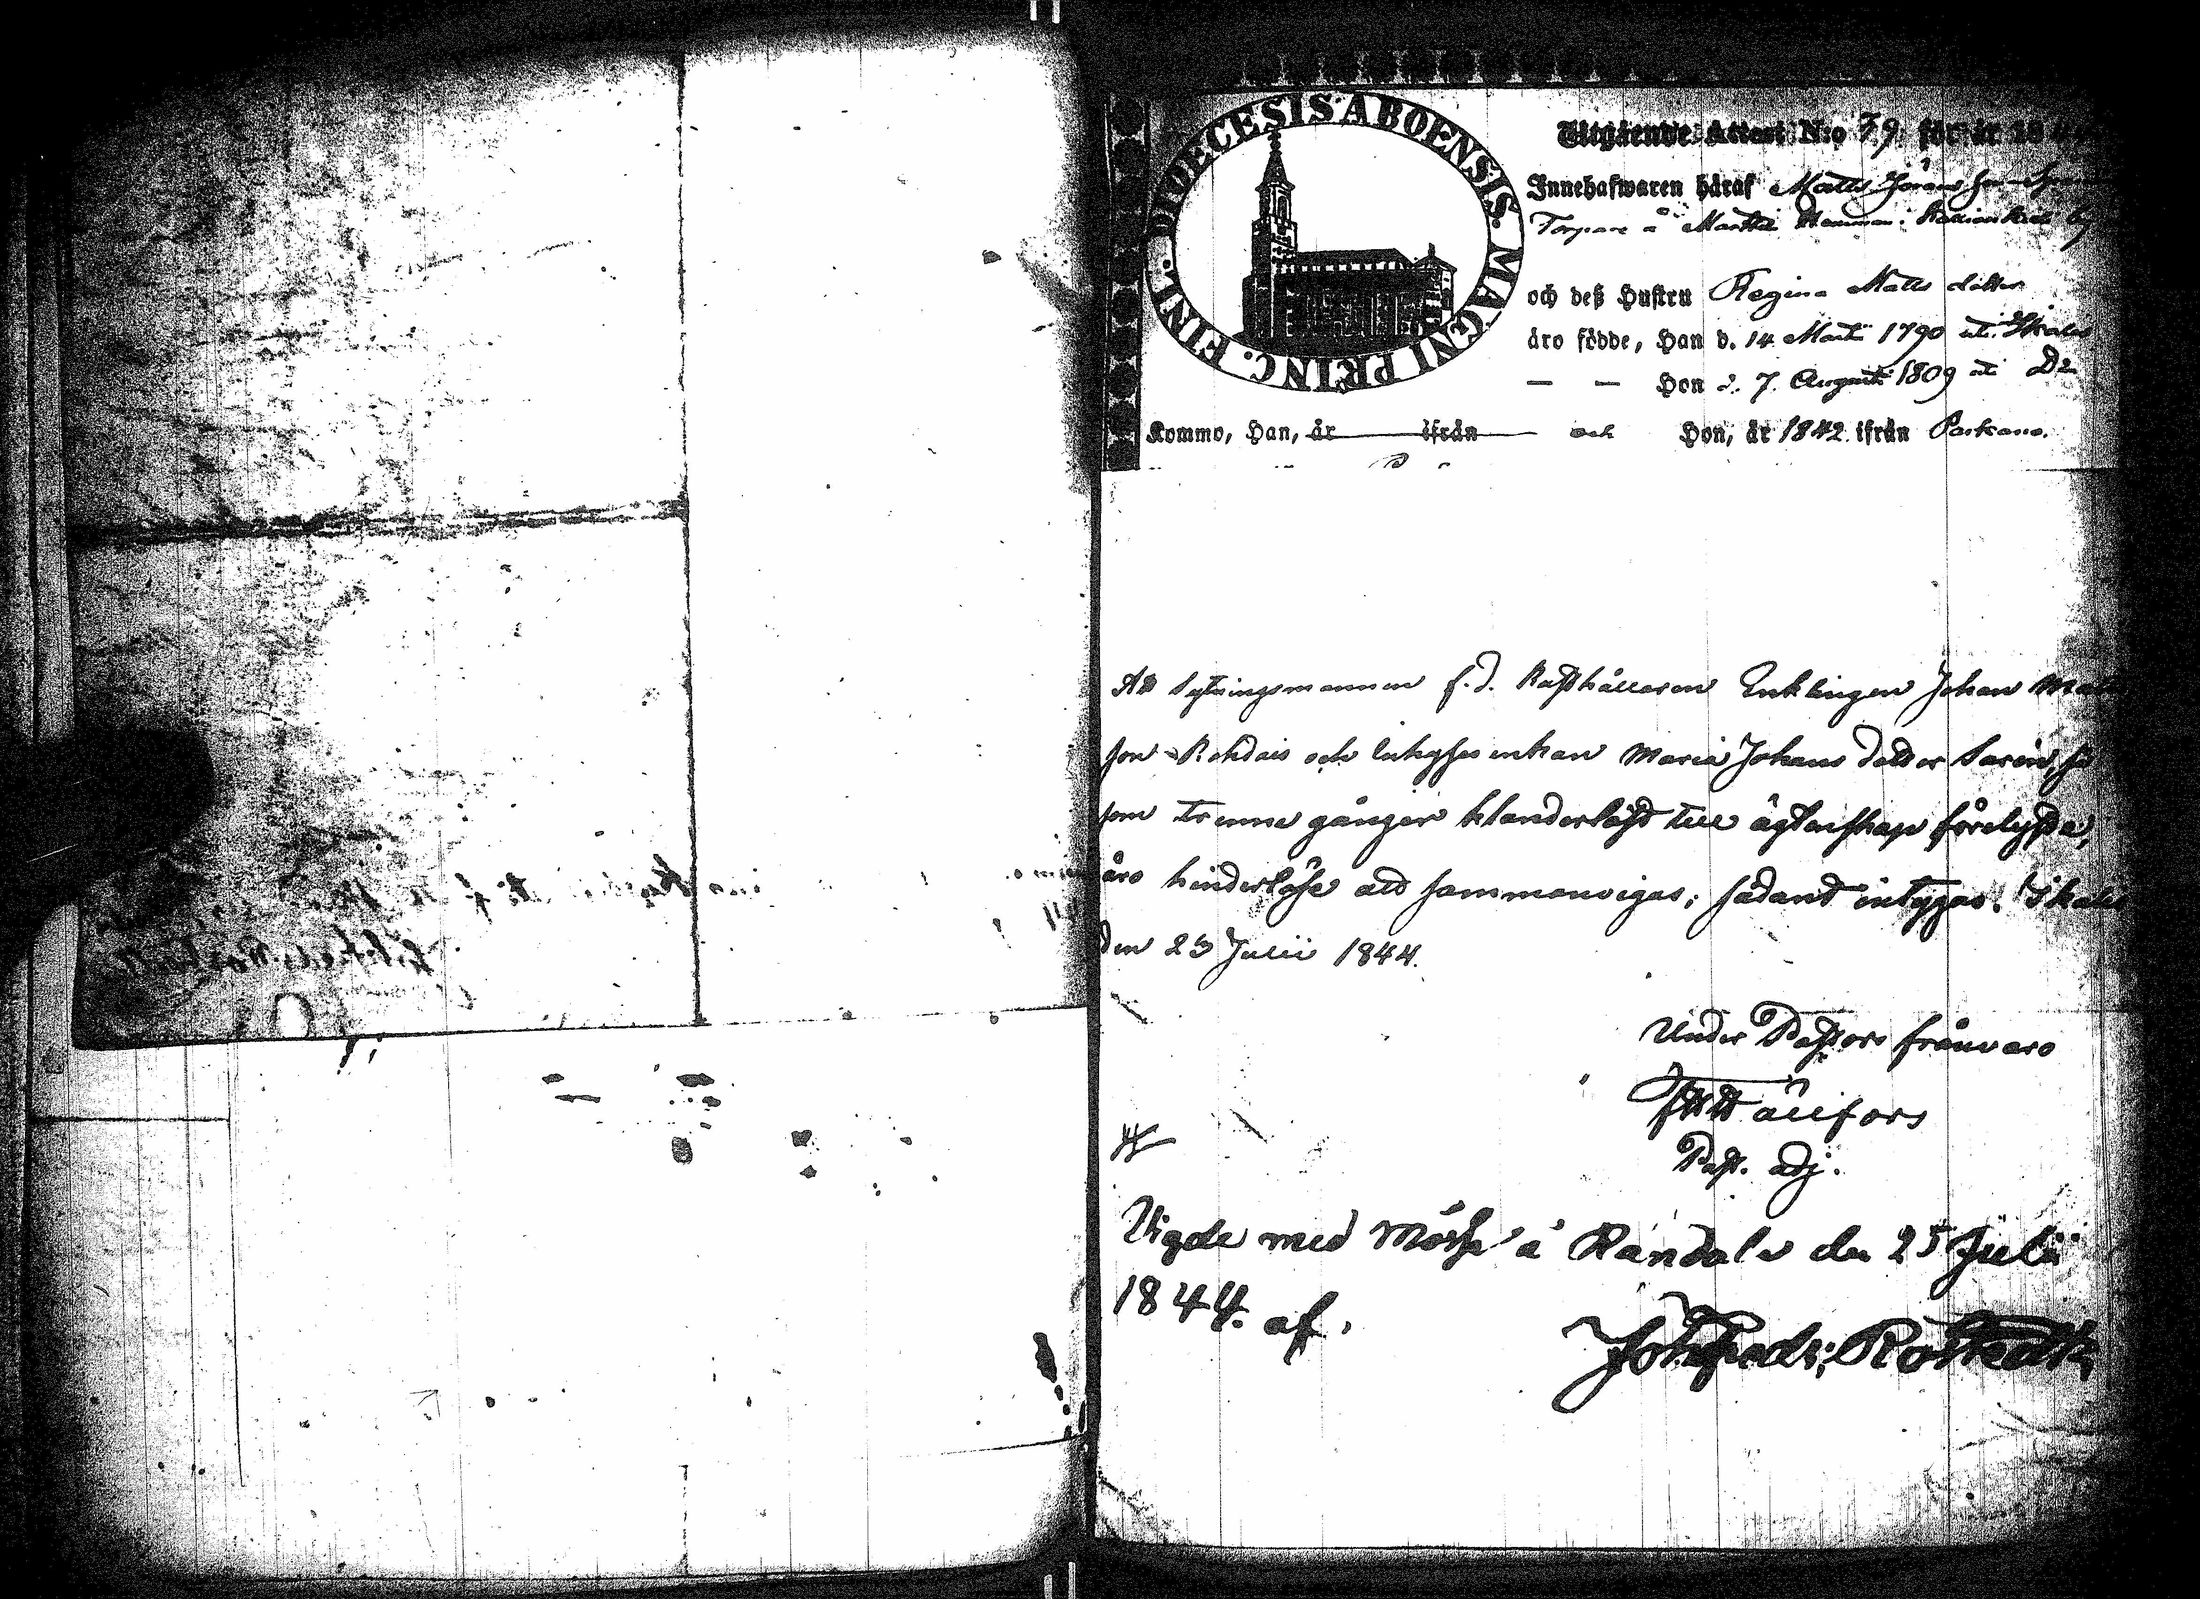 DIOECESIS ABOENSIS. MAGNI PRINC. FINL.
Utgående Attest N:o 79 för år 18
Innehafwaren häraf Matts Jöransson
Torpare å Marttila Hemman i by
och deß Hustru Regina Matts dotter
äro födde, Han d. 14 Martii 1790 uti Ikalis
— — Hon d. 7 Augusti 1809 uti Do
Kommo, Han, år ifrån och Hon, år 1842 ifrån Parkano.
Att Sytningsmannen f.d. Rusthållaren Enklingen Johan Matts
son Rohdais och Inhyses enkan Maria Johans dotter Sarin, så
som trenne gånger klanderlöst till ägtenskap förelysta,
äro hinderlöse att sammanvigas; sådant intygas. Ikalis
den 23 Julii 1844.
Under Pastors frånvaro
Past. adj.
Vigde med Mössa å den 25 Julii
1844. af.